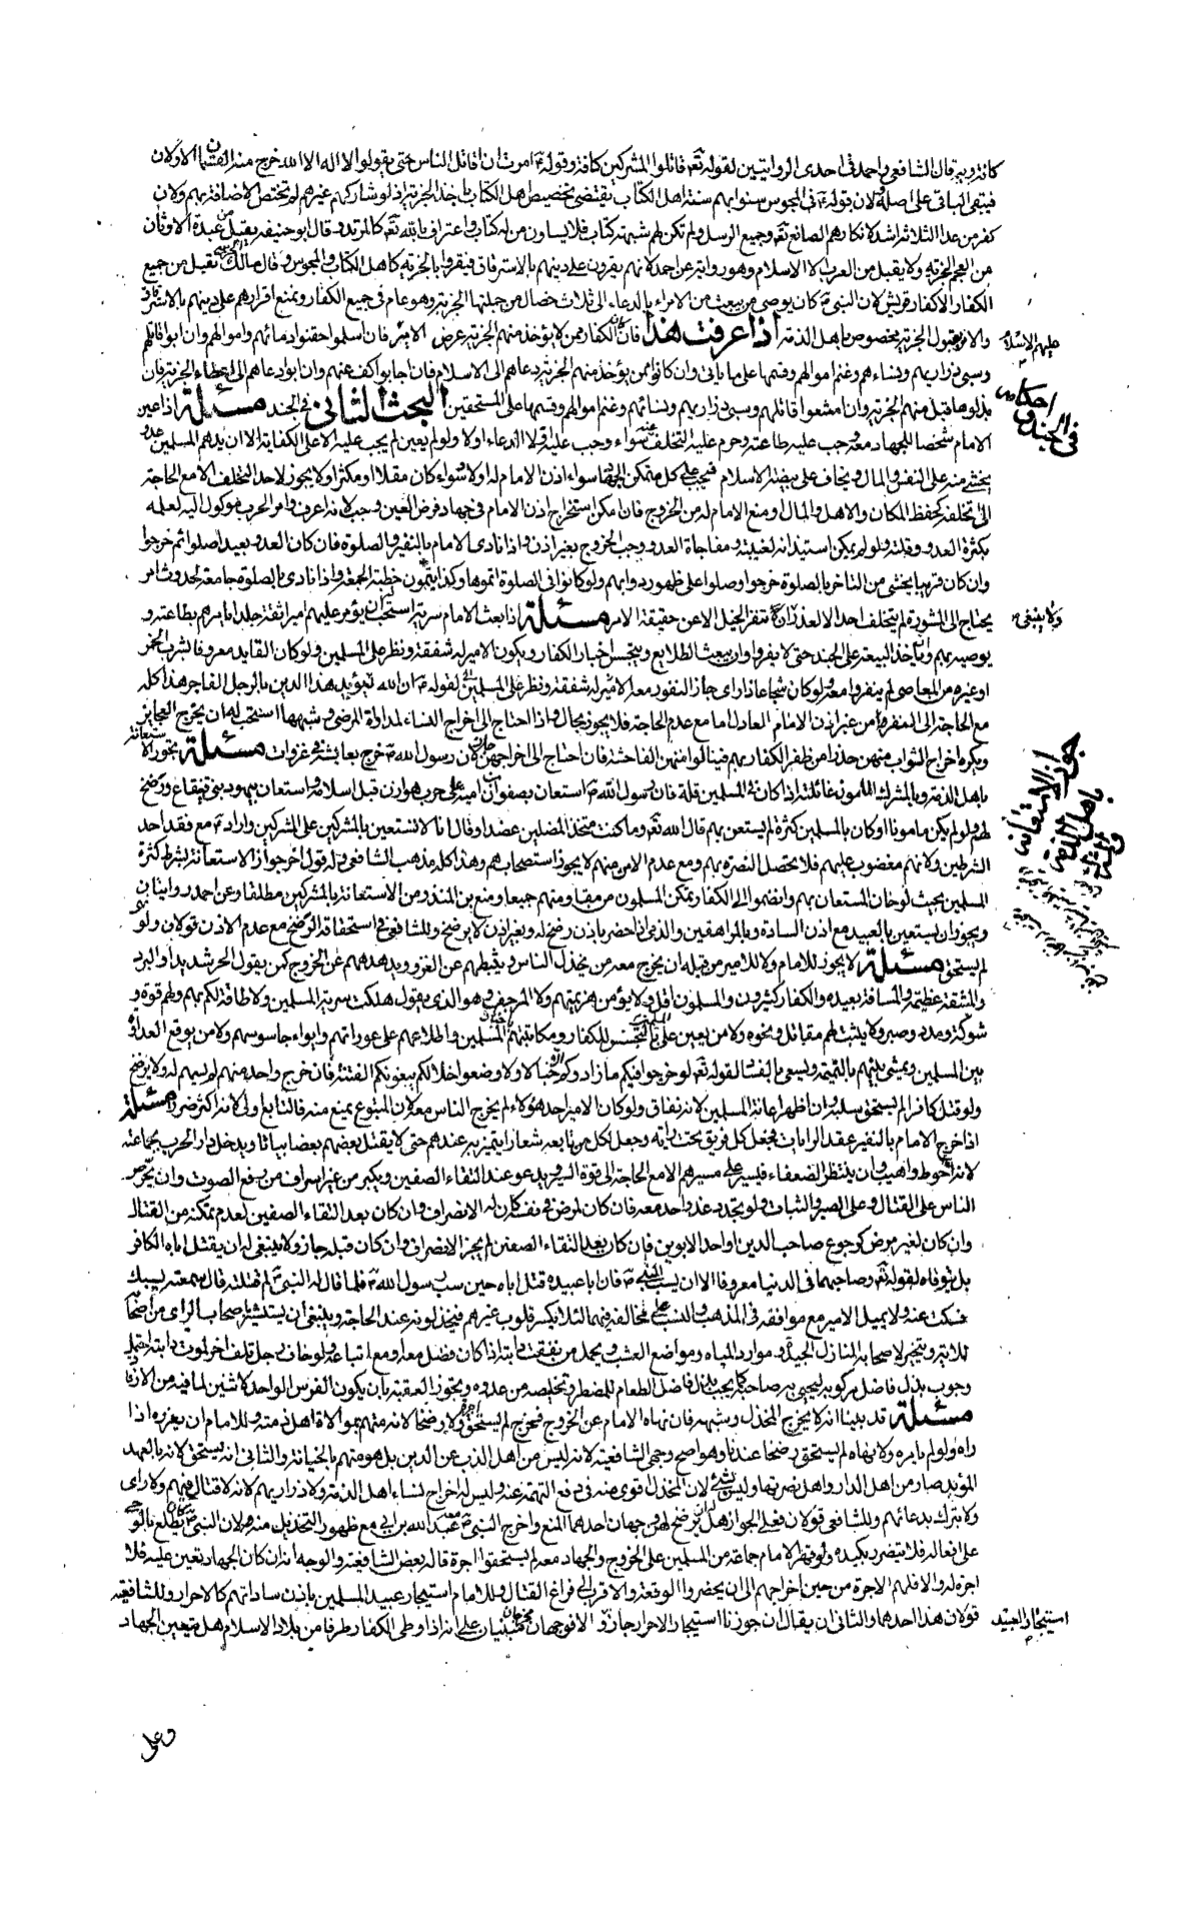 كافة وبه قال الشافعي واحمد في احدى الروايتين لقوله تع فاقتلوا المشركين كافة وقوله ع امرت ان اقاتل الناس حتى يقولوا لا اله الا الله خرج منه القسمان الاولان
فيبقى الباقي على اصله ولان قوله ع في المجوس سنوا بهم سنة اهل الكتاب يقتضي تخصيص اهل الكتاب باخذ الجزية اذ لو شاركهم غيرهم لم تختص الاضافة بهم ولان
كفر من عدا الثلاثة اشد لانكارهم الصانع تع وجميع الرسل ولم تكن لهم شبهة كتاب فلا يساوون من له كتاب واعتراف بالله تع كالمرتد وقال ابو حنيفة يقبل من عبدة الاوثان
من العجم الجزية ولا يقبل من العرب الا الاسلام وهو رواية عن احمد لانهم يقرون على دينهم بالاسترقاق فيقروا بالجزية كاهل الكتاب والمجوس وقال مالك تقبل من جميع
الكفار الا كفار قريش لان النبي ص كان يوصي من يبعث من الامراء بالدعاء الى ثلاث خصال من جملتها الجزية وهو عام في جميع الكفار ونمنع اقرارهم على دينهم بالاسترقاق
والامر بقبول الجزية مخصوص باهل الذمة اذا عرفت هذا فان كان الكفار ممن لا يؤخذ منهم الجزية عرض الامير عليهم الاسلام فان اسلموا حقنوا دمائهم واموالهم وان ابوا قاتلهم
وسبى ذراريهم ونساءهم وغنم اموالهم وقسمها على ما ياتي وان كانوا ممن يؤخذ منهم الجزية دعاهم الى الاسلام فان اجابوا كف عنهم وان ابوا دعاهم الى اعطاء الجزية فان
بذلوها قبل منهم الجزية وان منعوا قاتلهم وسبى ذراريهم ونسائهم وغنم اموالهم وقسمها على المستحقين البحث الثاني في الجند مسئلة اذا عين
احكام في الجند و
الامام شخصا للجهاد معه وجب عليه طاعته وحرم عليه التخلف عنه سواء وجب عليه اولا الدعاء او لا ولو لم يعين لم يجب عليه الا على الكفاية الا ان يدهم المسلمين عدو
يخشى منه على النفس والمال ويخاف على بيضة الاسلام فيجب على كل متمكن سواء اذن الامام له او لا وسواء كان مقلا او مكثرا ولا يجوز لاحد التخلف الا مع الحاجة
الى تخلفه كحفظ المكان والاهل والمال او منع الامام له من الخروج فان امكن استخراج اذن الامام في جهاد فرض العين وجب لانه اعرف وامر الحرب موكول اليه لعلمه
بكثرة العدو وقلته ولو لم يمكن استيذانه لغيبته ومفاجاة العدو وجب الخروج بغير اذن واذا نادى الامام بالنفير والصلوة فان كان العدو بعيدا صلوا ثم خرجوا
وان كان قريبا يخشى من التاخر بالصلوة خرجوا وصلوا على ظهور دوابهم ولو كانوا في الصلوة اتموها وكذا يتمون خطبة الجمعة واذا نادى بالصلوة جامعة لحدوث امر
يحتاج الى المشورة لم يتخلف احد الا لعذر ولا ينبغي ان تنفر الخيل الا عن حقيقة الامر مسئلة اذا بعث الامام سرية استحب له ان يؤمر عليهم اميرا ثقة جلدا يامرهم بطاعته و
يوصيه بهم وان ياخذ البيعة على الجند حتى لا يفروا وان يبعث الطلايع ويتجسس اخبار الكفار ويكون الامير له شفقة ونظر على المسلمين ولو كان القايد معروفا بشرب الخمر
او غيره من المعاصي لم ينفروا معه ولو كان شجاعا ذا راى جاز النفور معه لقوله ع ان الله ليؤيد هذا الدين بالرجل الفاجر هذا كله
مع الحاجة الى النفير من غير اذن الامام العادل اما مع عدم الحاجة فلا يجوز بحال واذا احتاج الى اخراج النساء لمداواة المرضى وشبهها استحب له ان يخرج العجايز
ويكره اخراج الشواب منهن حذرا من ظفر الكفار بهم فينالوا منهن الفاحشة فان احتاج الى اخراجهن جاز لان رسول الله ص خرج بعايشة في غزوات مسئلة تجوز الاستعانة
جواز الاستعانة باهل الذمة و
باهل الذمة وبالمشرك المامون غائلته اذا كان في المسلمين قلة فان رسول الله ص استعان بصفوان بن امية على حرب هوازن قبل اسلامه واستعان بيهود بني قينقاع ورضخ
لهم ولو لم يكن مامونا او كان بالمسلمين كثرة لم يستعن بهم قال الله تع وما كنت متخذ المضلين عضدا وقال ع انا لا نستعين بالمشركين على المشركين واراد ع مع فقد احد
الشرطين ولانهم مغضوب عليهم فلا يحصل النصرة بهم ومع عدم الامن منهم لا يجوز استصحابهم وهذا كله مذهب الشافعي وله قول اخر جواز الاستعانة بشرط كثرة
المسلمين بحيث لو خان المستعان بهم وانضموا الى الكفار تمكن المسلمون من مقاومتهم جميعا ومنع بن المنذر من الاستعانة بالمشركين مطلقا وعن احمد روايتان
ويجوز ان يستعين بالعبيد مع اذن السادة وبالمراهقين والذمي اذا حضر باذن رضخ له وبغير اذن لا يرضخ وللشافعي في استحقاقه الرضخ مع عدم الاذن قولان ولو نهى
لم يستحق مسئلة لا يجوز للامام ولا للامير من قبله ان يخرج معه من يخذل الناس ويثبطهم عن الغزو ويزهدهم عن الخروج كمن يقول الحر شديد او البرد
والمشقة عظيمة والمسافة بعيدة والكفار كثيرون والمسلمون اقل ولا يؤمن هزيمتهم ولا المرجف وهو الذي يقول هلكت سرية المسلمين ولا طاقة لكم بهم ولهم قوة و
شوكة ومدد وصبر ولا يثبت لهم مقاتل ونحوه ولا من يعين على المسلمين بالتجسس للكفار ومكاتبتهم باخبار المسلمين واطلاعهم على عوراتهم وايواء جاسوسهم ولا من يوقع العداوة
بين المسلمين ويمشي بينهم بالنميمة ويسعى بالفساد لقوله تع لو خرجوا فيكم ما زادوكم الا خبالا ولاوضعوا خلالكم يبغونكم الفتنة فان خرج واحد منهم لم يسهم له ولا يرضخ
ولو قتل كافرا لم يستحق سلبه وان اظهر اعانة المسلمين لانه نفاق ولو كان الامير احد هؤلاء لم يخرج الناس معه لان المتبوع يمنع منه فالتابع اولى لانه اكثر ضررا مسئلة
اذا خرج الامام بالنفير عقد الرايات فجعل كل فريق تحت راية وجعل لكل من تابعه شعارا يتميز به عندهم حتى لا يقتل بعضهم بعضا بياتا ويدخل دار الحرب بجماعته
لانه احوط واهيب وان ينتظر الضعفاء فيسير على مسيرهم الا مع الحاجة الى قوة السير ويدعو عند التقاء الصفين ويكبر من غير اسراف من رفع الصوت وان يحرض
الناس على القتال وعلى الصبر والثبات ولو تجدد عذر واحد معه فان كان لمرض في نفسه كان له الانصراف وان كان بعد التقاء الصفين لعدم تمكنه من القتال
وان كان لغير مرض كرجوع صاحب الدين او احد الابوين فان كان بعد التقاء الصفين لم يجز الانصراف وان كان قبله جاز ولا ينبغي له ان يقتل اباه الكافر
بل يتوقاه لقوله تع وصاحبهما في الدنيا معروفا الا ان يسب النبي ص فان ابا عبيدة قتل اباه حين سب رسول الله ص فلما قال له النبي ص لم قتلته قال سمعته يسبك
فسكت عنه ولا يميل الامير مع موافقه في المذهب والنسب على مخالفه فيهما لئلا يكسر قلوب غيرهم فيخذلونه عند الحاجة وينبغي ان يستشير اصحاب الراى من اصحابه
للاية ويتخير لاصحابه المنازل الجيدة وموارد المياه ومواضع العشب ويحمل من نفقت دابته اذا كان فضل معه او مع اتباعه ولو خاف رجل تلف اخر لموت دابته احتمل
وجوب بذل فاضل مركوبه ليحيي به صاحبه كما يجب بذل فاضل الطعام للمضطر وتخليصه من عدوه ويجوز العقبة بان يكون الفرس الواحد لاثنين لما فيه من الارفاق
مسئلة قد بينا انه لا يخرج المخذل وشبهه فان نهاه الامام عن الخروج فخرج لم يستحق اجرة ولا رضخا لانه متهم بموالاة اهل ذمته وللامام ان يعزره اذا
راه ولو لم يامره ولا نهاه لم يستحق رضخا عندنا وهو اصح وجهي الشافعية لانه ليس من اهل الذب عن الدين بل هو متهم بالخيانة والثاني انه يستحق لانه بالعهد
المؤبد صار من اهل الدار واهل نصرتها وليس بشيء لان المخذل اقوى منه في دفع التهمة عنه وليس له اخراج نساء اهل الذمة ولا ذراريهم لانه لا قتال فيهم ولا راى
ولا تبرك بدعائهم وللشافعي قولان فعلى الجواز هل يرضخ لهم وجهان احدهما المنع واخرج النبي ص معه عبد الله بن ابي مع ظهور التخذيل منه لان النبي ص كان يطلع بالوحي
على افعاله فلا يتضرر بكيده ولو قهر الامام جماعة من المسلمين على الخروج والجهاد معه لم يستحقوا اجرة قاله بعض الشافعية والوجه انه ان كان الجهاد تعين عليه فلا
اجرة له والا فلهم الاجرة من حين اخراجهم الى ان يحضروا الوقعة والاقرب الى فراغ القتال وللامام استيجار عبيد المسلمين باذن ساداتهم كالاحرار وللشافعية
استيجار العبيد قولان هذا احدهما والثاني ان يقال ان جوزنا استيجار الاحرار جاز والا فوجهان مخرجان مبنيان على انه اذا وطى الكفار طرفا من بلاد الاسلام هل يتعين الجهاد
وعلى